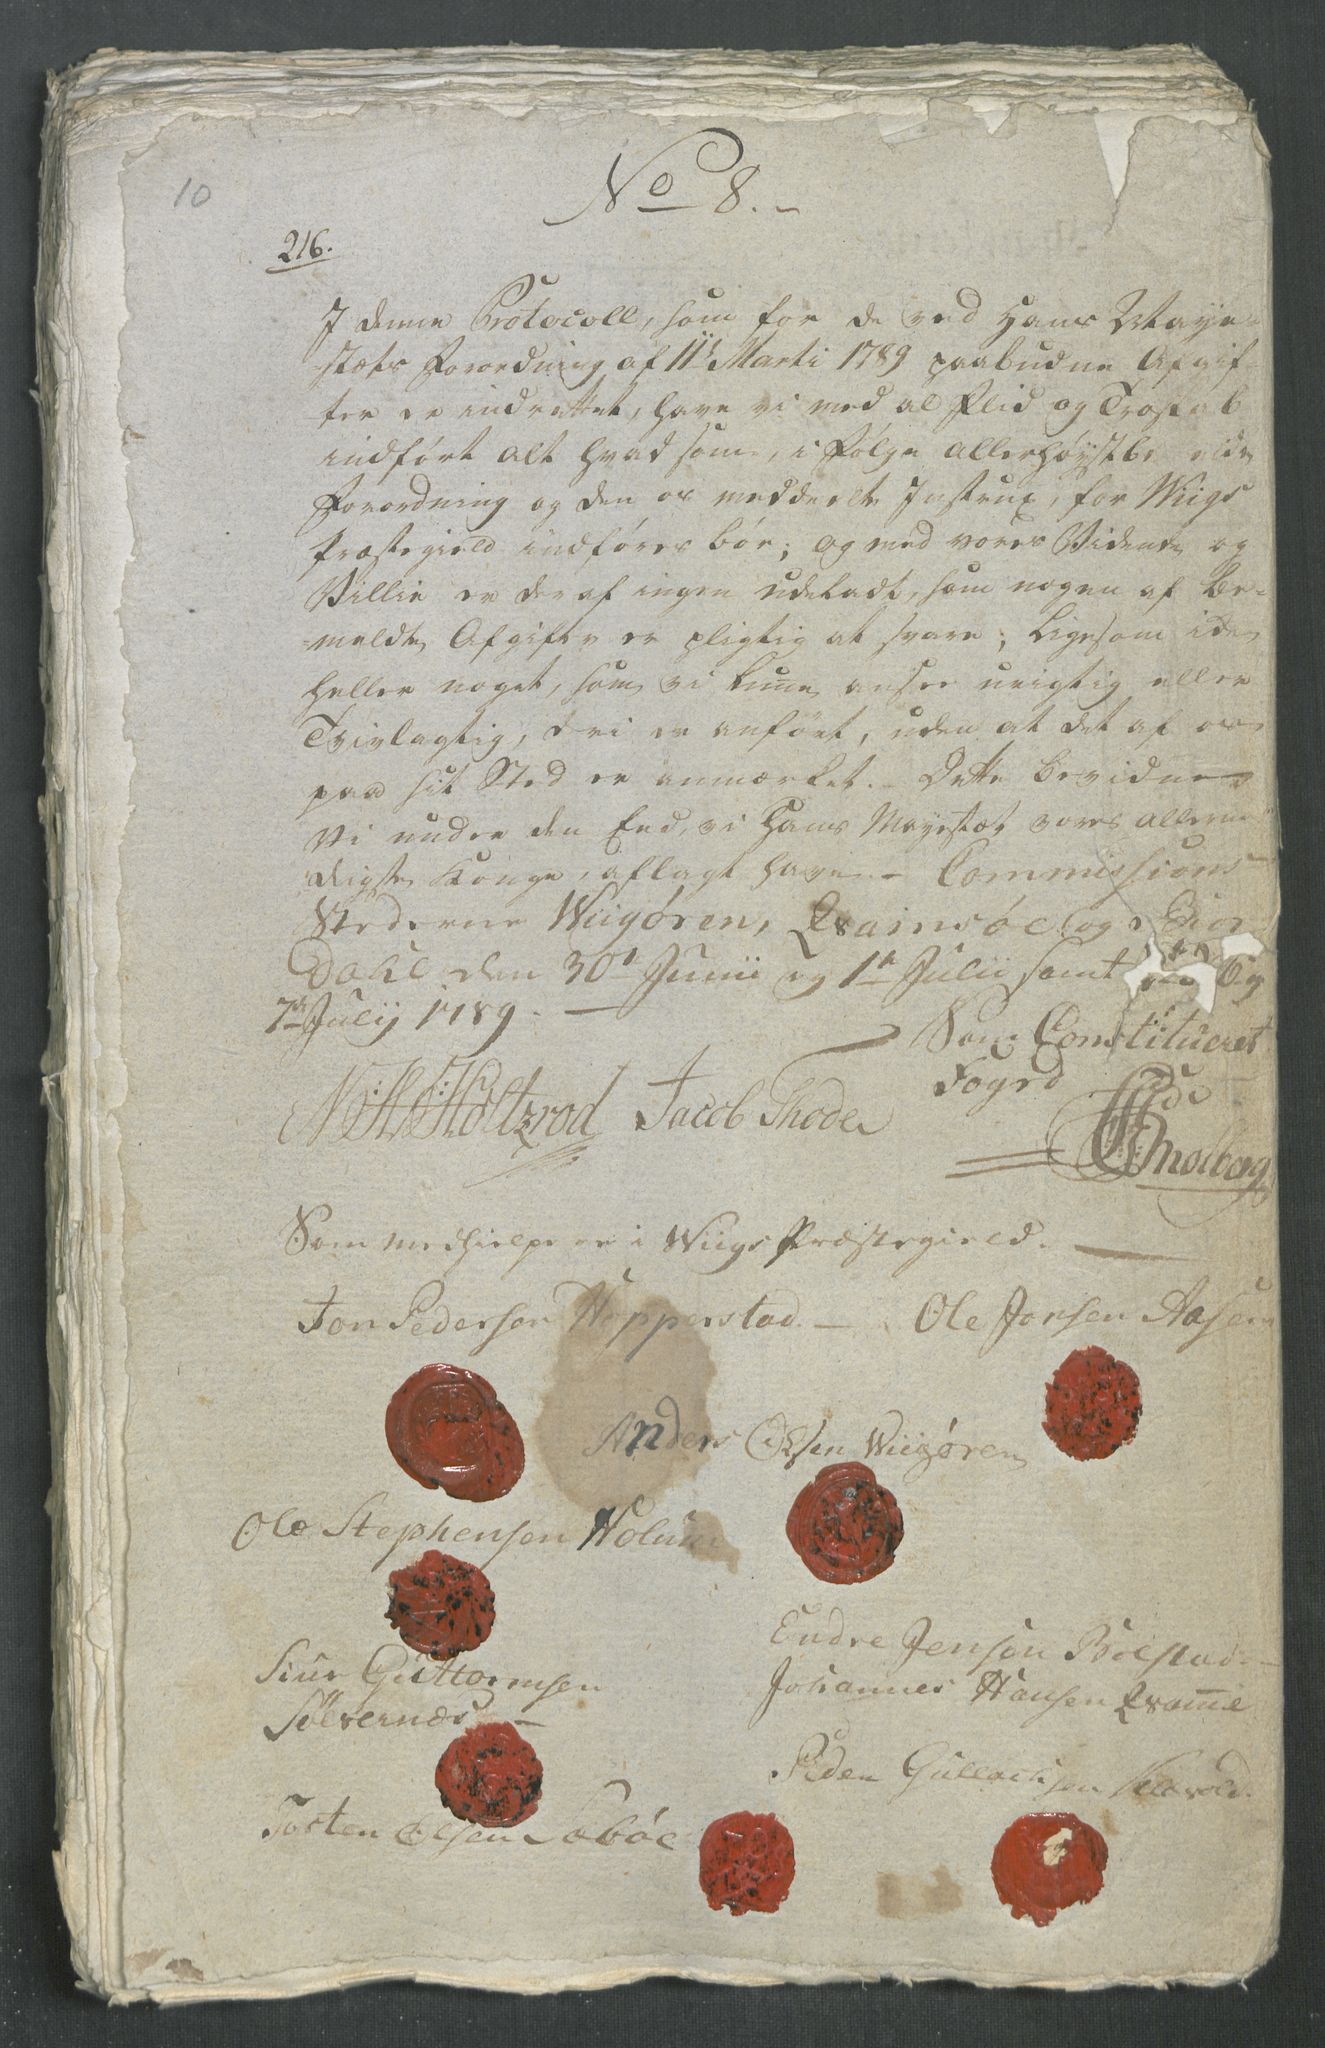 10
No 8.
216.
I denne Protocoll, som for de ved Hans Maye-
stæts Forordning af 11te Marti 1789 paabudne Afgif-
ter er indrettet, have vi med al Flid og Troskab
indført alt hvad som, i Følge allerhøystbemeldte
Forordning og den os meddeelte Instrux, for Wiigs
Præstegield indføres bør; og med vores Vidende og
Villie er deraf ingen udeladt, som nogen af be-
meldte Afgifter er pligtig at svare; ligesom iden
heller noget, som vi kunne ansee urigtig eller
Tvivlagtig, deri er anført, uden at det af os
paa sit Sted er anmærket. Dette bevidner
Vi under den Eed, vi Hans Mayestæt vores allernaa-
digste Konge, aflagt have. – Commissions
Stederne Wiigøren, Qvamsøe og
Dahl den 30te Junii og 1te Julii samt 6 og
7de Julij 1789. –
Som Constitueret
Foged
N: H: Holtzrod Jacob Thode
Smolberg
Som medhielpere i Wiigs Præstegield.
Jon Pedersen Hopperstad. – Ole Jonsen Aasen
Anders Olsen Wiigøren
Ole Stephensen Holum
Endre Jensen Bøestad
Siur Guttormsen
Johannes Hansen Qvamme
Sølvernæs –
Peder Gullachsen
Tosten Olsen Søbøe